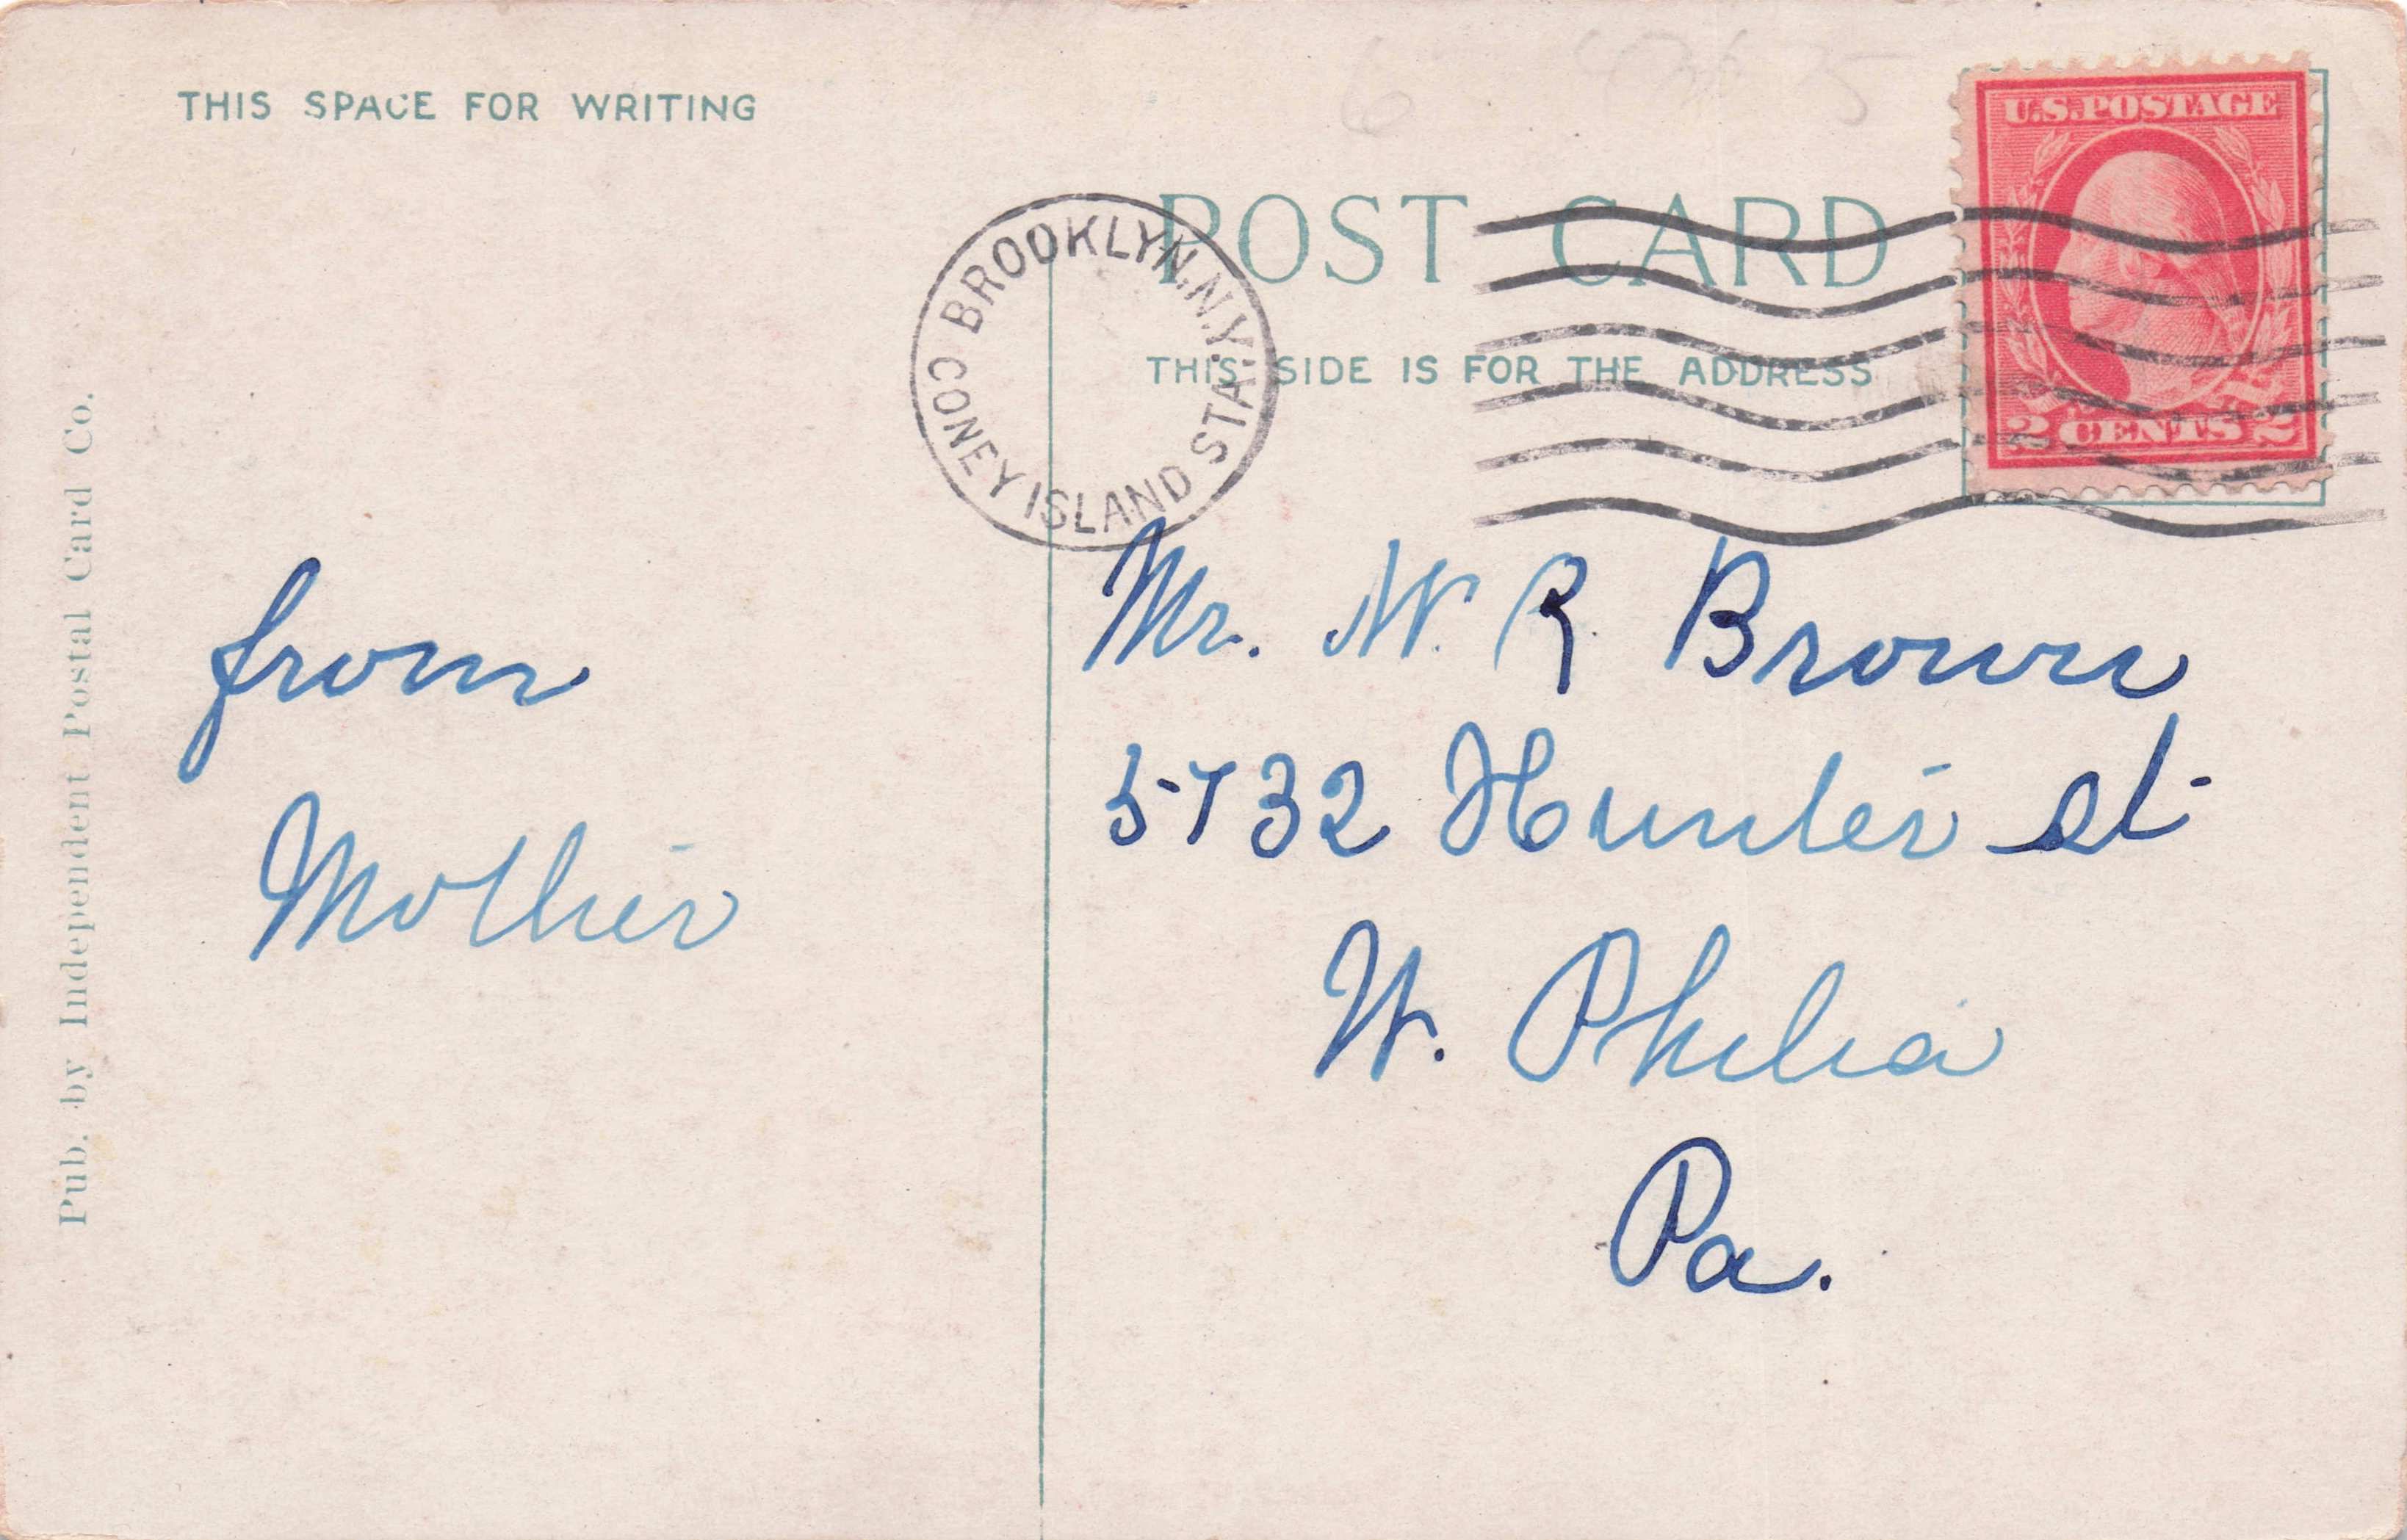 THIS SPACE FOR WRITING
Pub. by Independent Postal Card Co.
from
Mother
POST CARD
THIS SIDE IS FOR THE ADDRESS
BROOKLYN, N.Y.
CONEY ISLAND STA.
U.S. POSTAGE
2 CENTS 2
Mr. W. R Brown
5732 Hunter st
W. Philia
Pa.